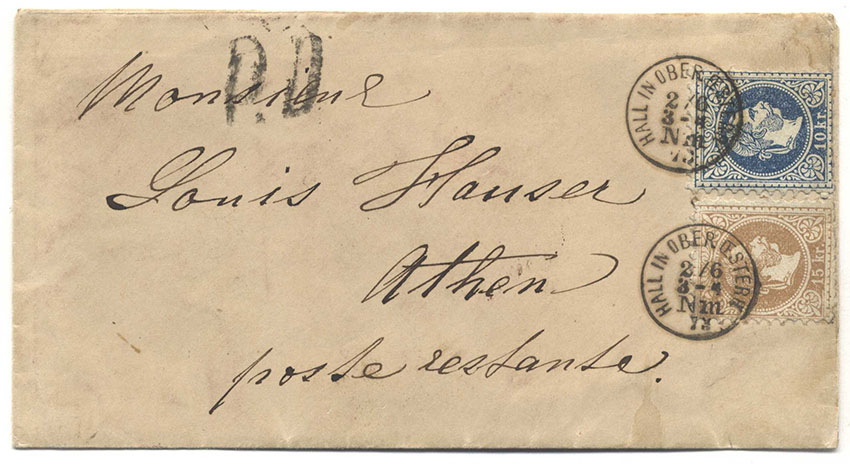 P.D
Monsieur
Louis Hauser
Athen
poste restante.
HALL IN OBER ŒST
2/6
3-4
Nm
73
10 kr.
HALL IN OBER ŒSTERR
2/6
3-4
Nm
73
15 kr.